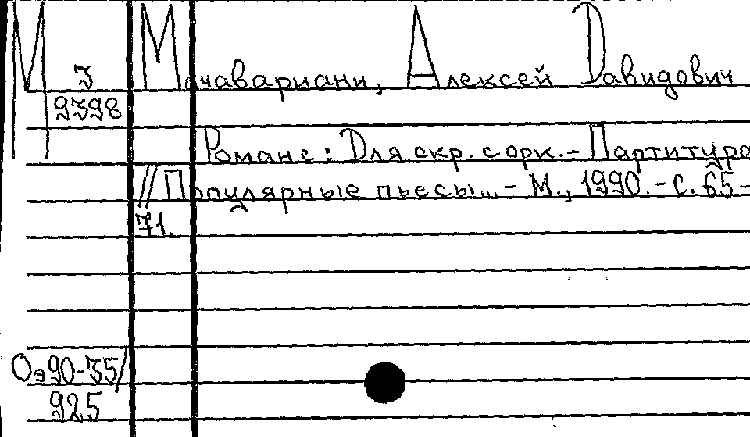 М
З
9398
Мачавариани, Алексей Давидович
Романс: Для скр. с орк. - Партитура
// Популярные пьесы... - М., 1990. - С. 65-
71.
Оэ90-35/
925